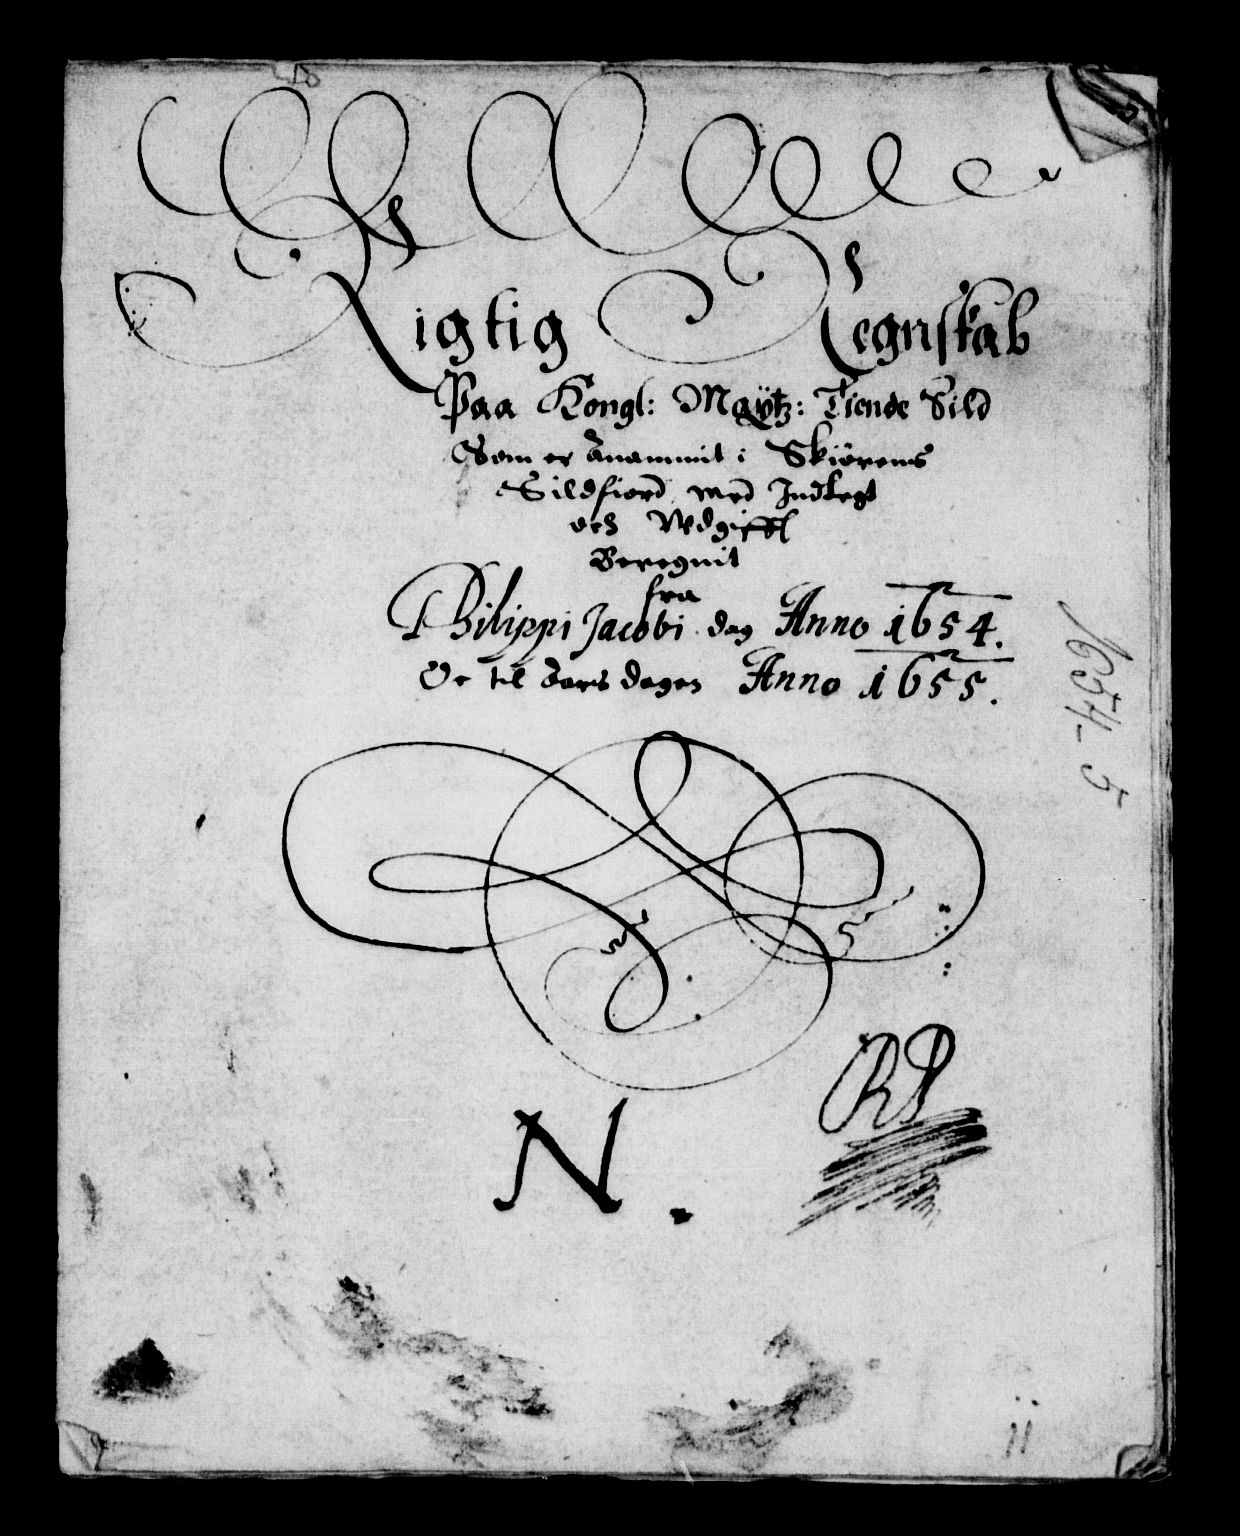 Rigtig Regnskab
Paa Kongl: Maÿtz: Tiende Sild
Som er Anammit i Skiørens
Sildfiord med Indtegt
och Wdgifft
Beregnit
fra
Philippi Jacobi dag Anno 1654.
Oc til Aars dagen Anno 1655.
1654-5
N.
RP
ii